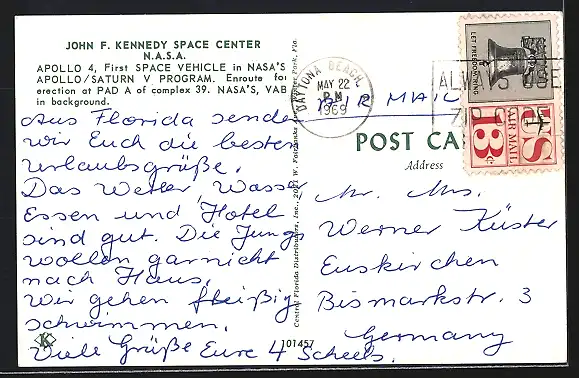 JOHN F. KENNEDY SPACE CENTER
N.A.S.A.
APOLLO 4, First SPACE VEHICLE in NASA'S
APOLLO/SATURN V PROGRAM. Enroute for
erection at PAD A of complex 39. NASA'S, VAB
in background.
Aus Florida senden
wir Euch die besten
Urlaubsgrüße.
Das Wetter, Wasser
Essen und Hotel
sind gut. Die Jungs
wollen garnicht
nach Haus.
Wir gehen fleißig
schwimmen.
Viele Grüße Eure 4 Scheels.
K
Central Florida Distributors, Inc.,
101457
DAYTONA BEACH, FLA.
MAY 22
PM
1969
AIR MAIL
ALWAYS USE
ZIP
LET FREEDOM RING
US
AIR MAIL
13¢
POST CARD
Address
Mr. Mrs.
Werner Küster
Euskirchen
Bismarkstr. 3
Germany